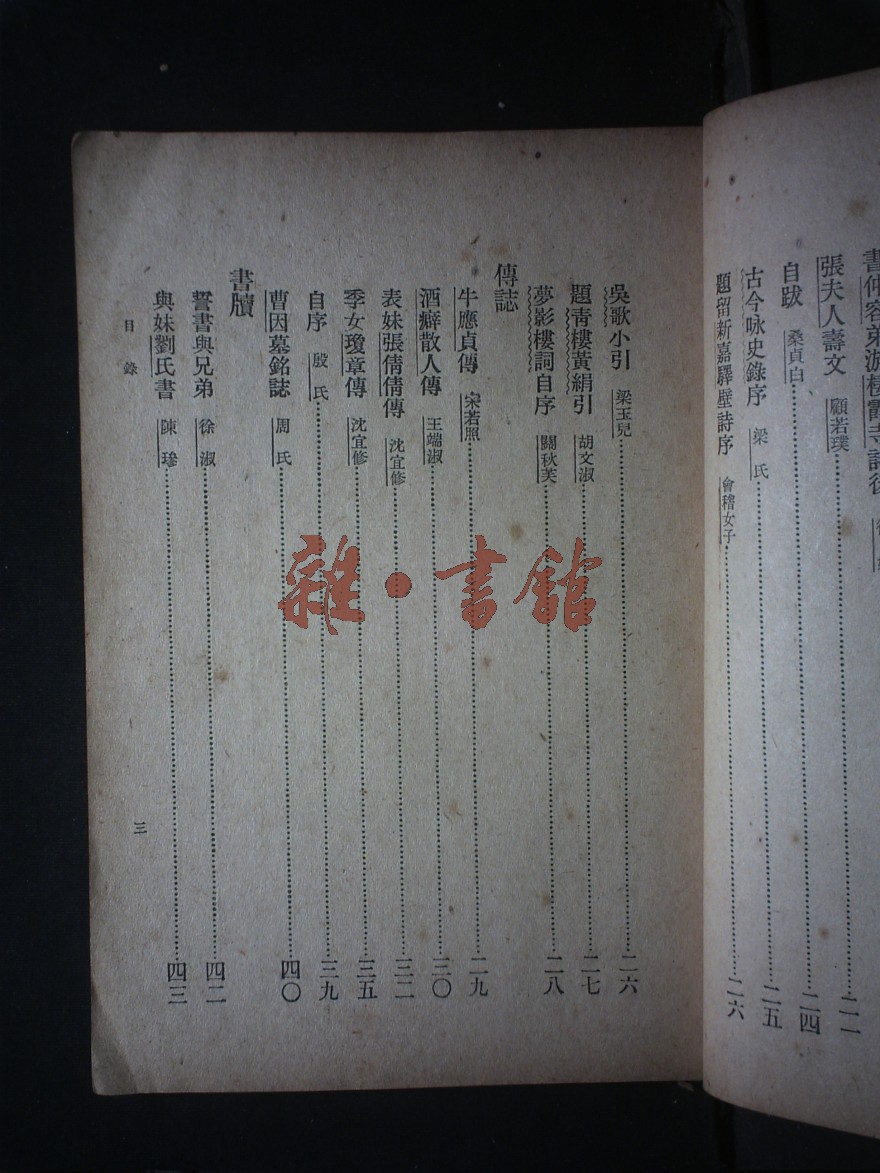 書仲容弟游棲霞寺詩後
張夫人壽文 顧若璞 二一
自跋 桑貞白 二四
古今咏史錄序 梁氏 二五
題留新嘉驛壁詩序 會稽女子 二六
吳歌小引 梁玉兒 二六
題靑樓黃絹引 胡文淑 二七
夢影樓詞自序 關秋芙 二八
傳誌
牛應貞傳 宋若照 二九
酒癖散人傳 王端淑 三〇
表妹張倩倩傳 沈宜修 三二
季女瓊章傳 沈宜修 三五
自序 殷氏 三九
曹因墓銘誌 周氏 四〇
書牘
誓書與兄弟 徐淑 四二
與妹劉氏書 陳㻸 四三
目錄 三
雜·書館